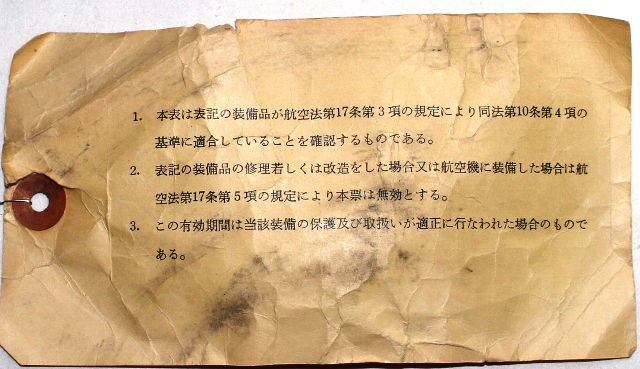 1. 本表は表記の装備品が航空法第17条第3項の規定により同法第10条第4項の
基準に適合していることを確認するものである。
2. 表記の装備品の修理若しくは改造をした場合又は航空機に装備した場合は航
空法第17条第5項の規定により本票は無効とする。
3. この有効期間は当該装備の保護及び取扱いが適正に行なわれた場合のもので
ある。